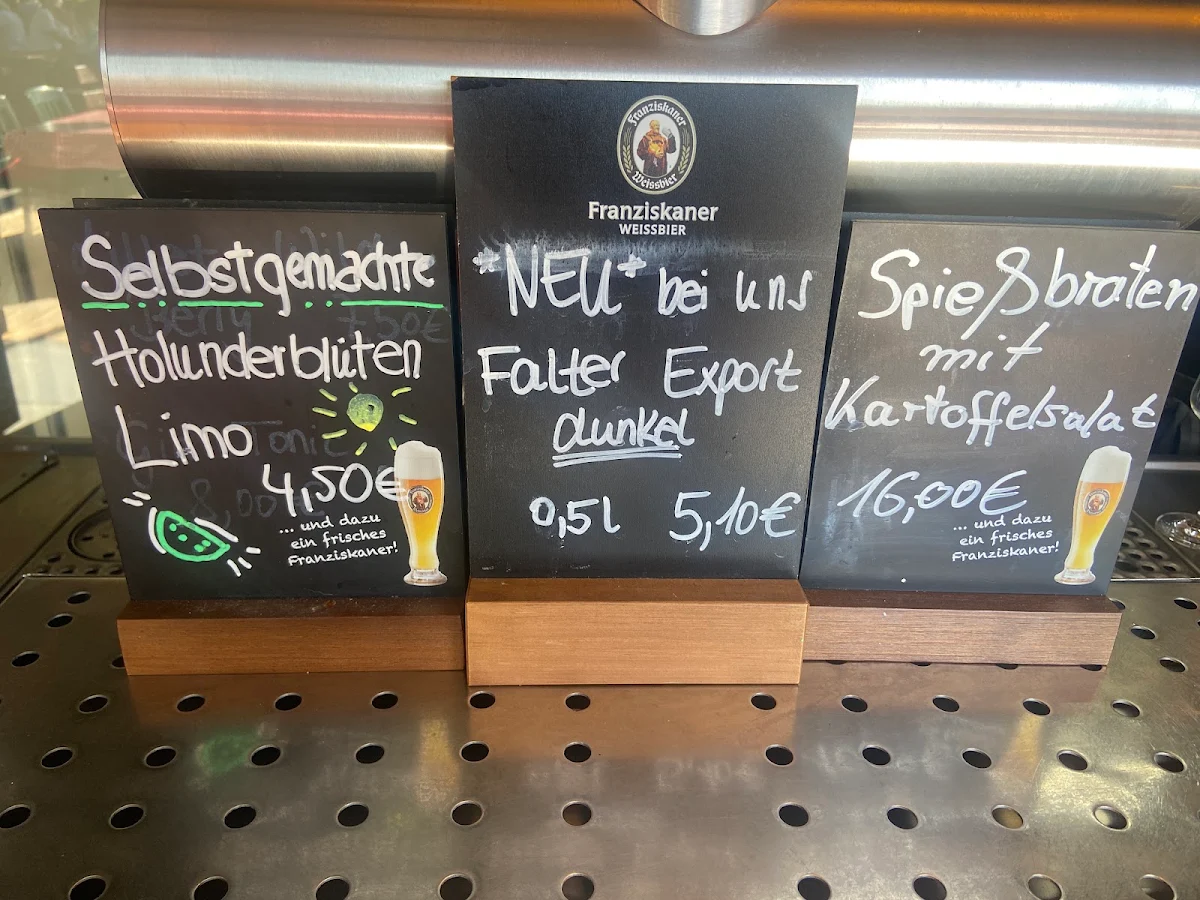 Selbstgemachte
Holunderblüten
Limo
4,50€
... und dazu
ein frisches
Franziskaner!
Franziskaner
Weissbier
Franziskaner
WEISSBIER
*NEU* bei uns
Falter Export
dunkel
0,5l 5,10€
Spießbraten
mit
Kartoffelsalat
16,00€
... und dazu
ein frisches
Franziskaner!